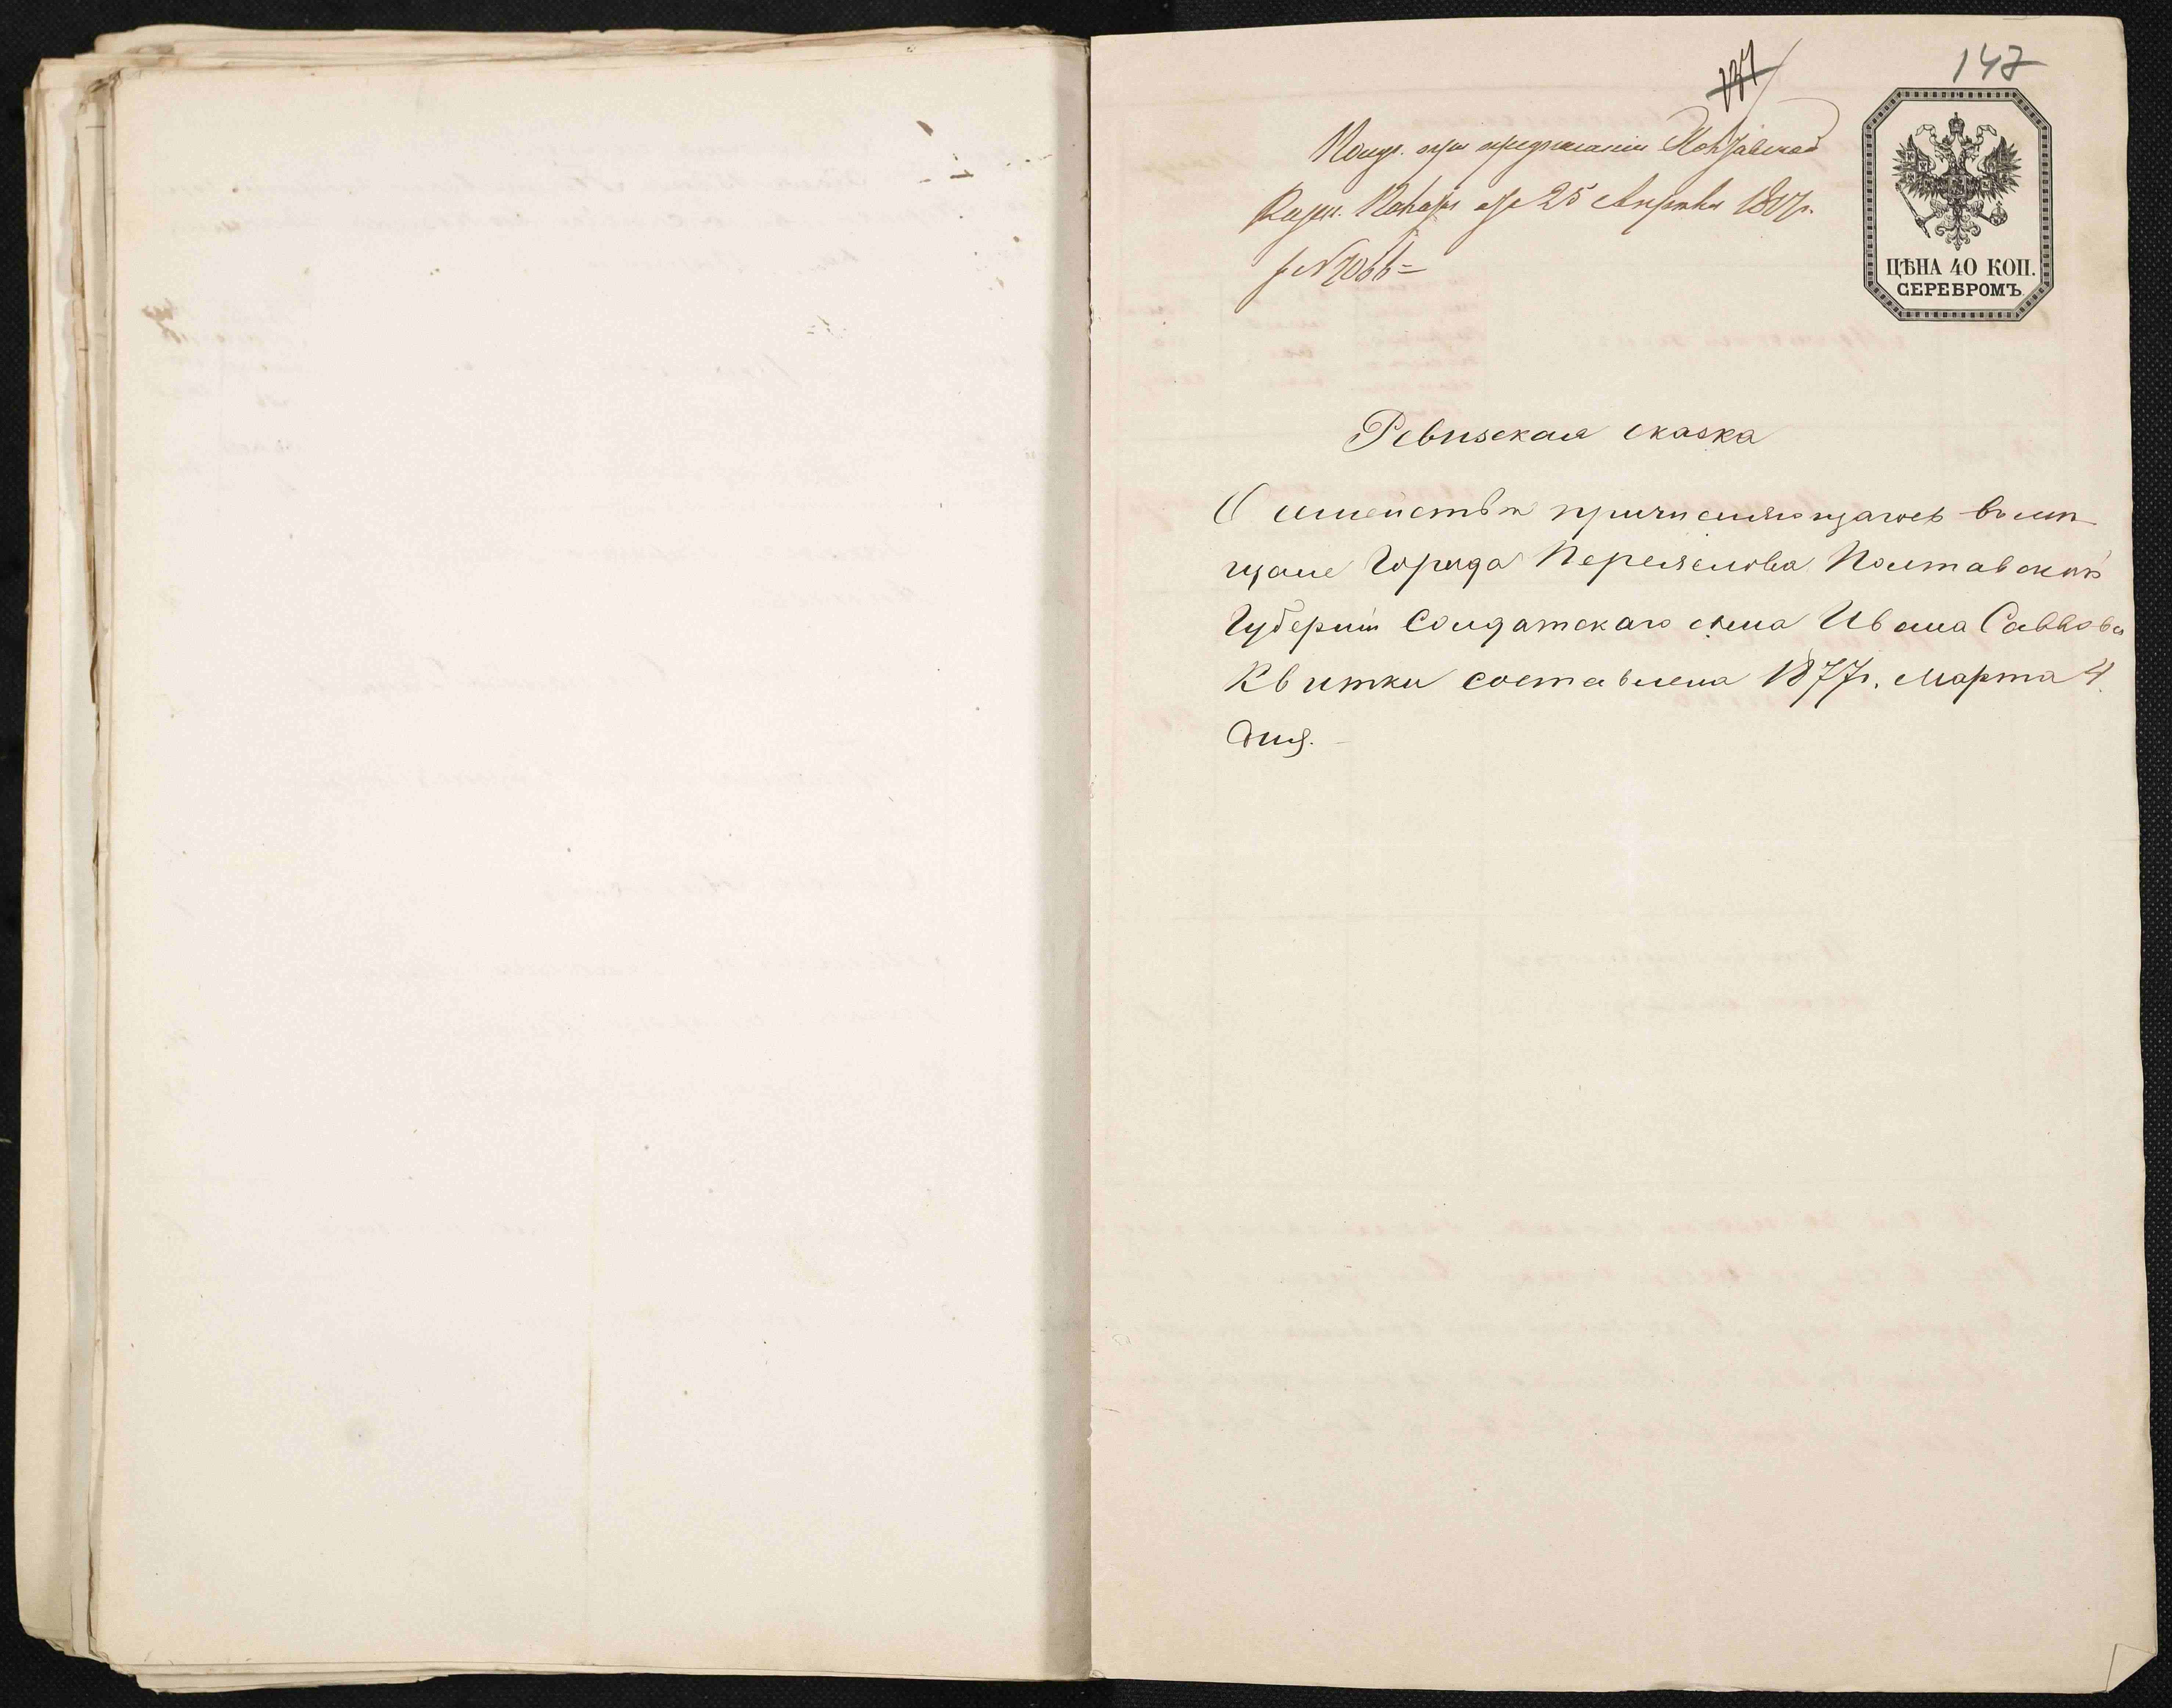 147
137
Получ. при предписаніи Полтавской
Казен. Палаты отъ 25 Апрѣля 1877г.
ЦѢНА 40 КОП.
СЕРЕБРОМЪ
Ревизская сказка
О семействѣ причисляющагося въ мѣ-
щане Города Переяслова Полтавской
Губерніи Солдатскаго сына Ивана Саввова
Квитки составлена 1877г. Марта 4
дня.